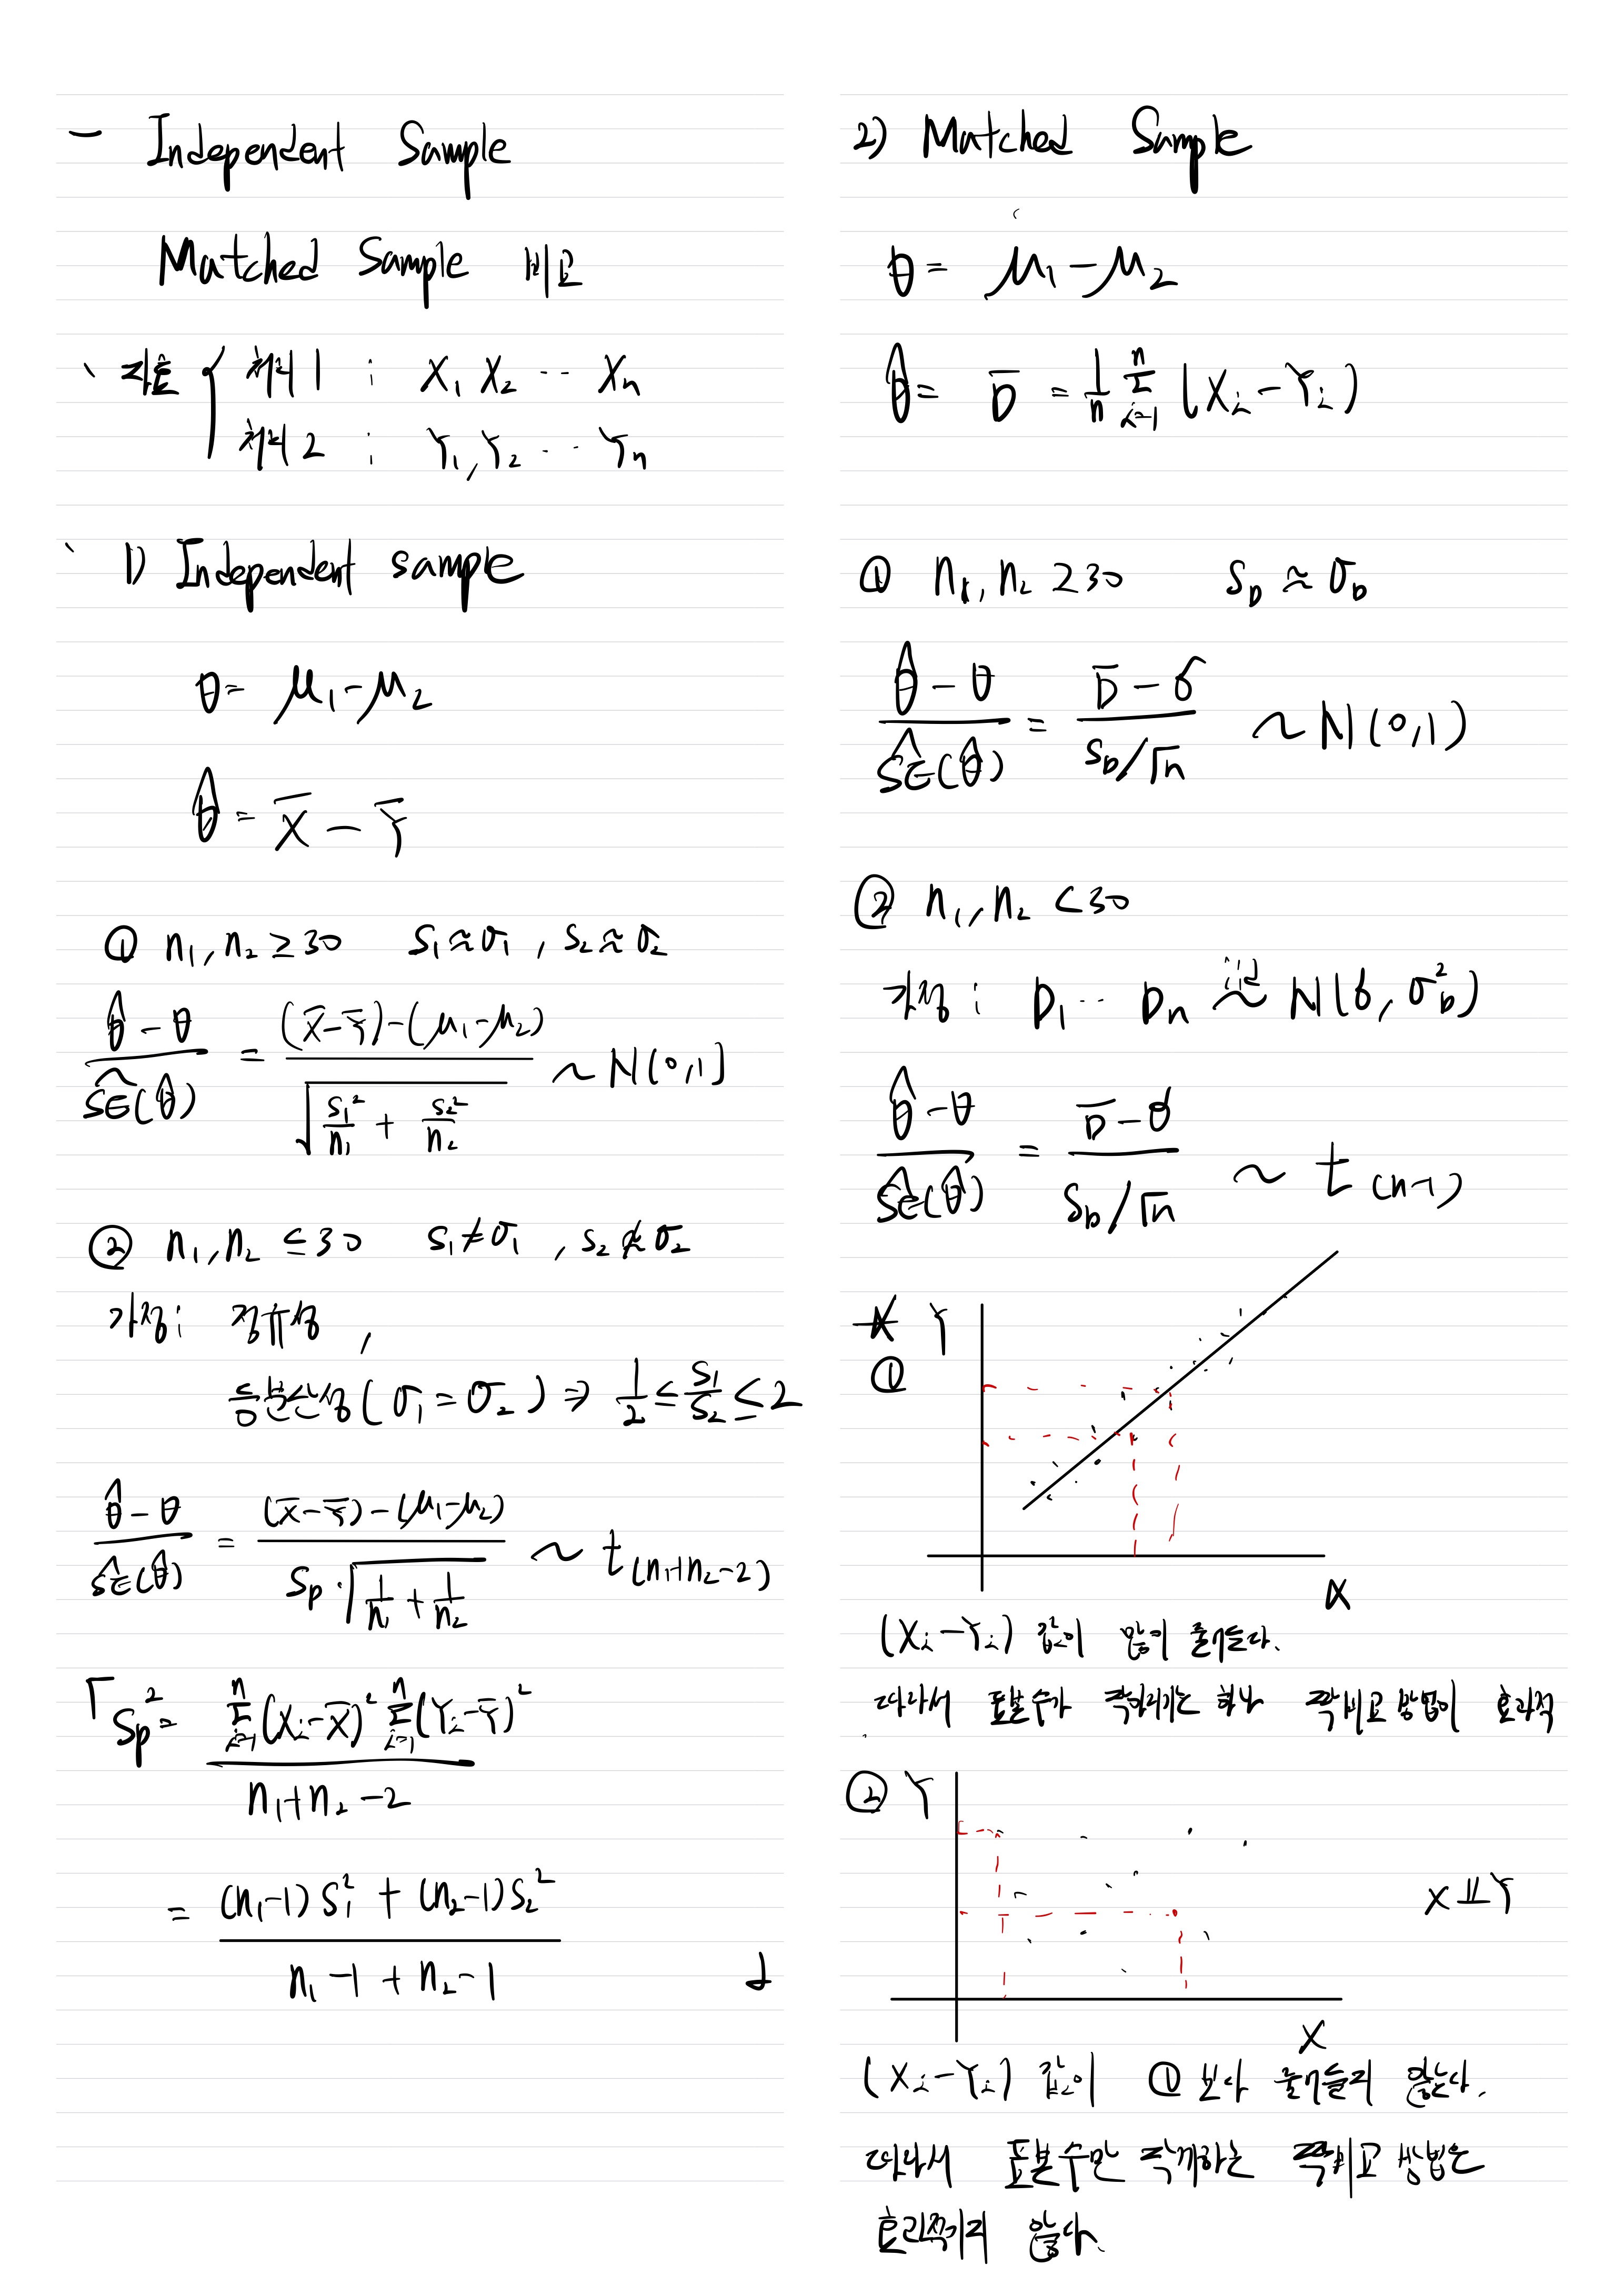 - Independent Sample
Matched Sample 비교
자료 { 처리 1 : X₁ X₂ ... Xₙ
처리 2 : Y₁, Y₂ ... Yₙ
1) Independent sample
θ = μ₁ - μ₂
θ̂ = X̄ - Ȳ
① n₁, n₂ ≥ 30 S₁ ≈ σ₁, S₂ ≈ σ₂
(θ̂ - θ) / ŜE(θ̂) = ((X̄ - Ȳ) - (μ₁ - μ₂)) / √(S₁²/n₁ + S₂²/n₂) ~ N(0,1)
② n₁, n₂ ≤ 30 S₁ ≠ σ₁, S₂ ≉ σ₂
가정 : 정규성,
등분산성 (σ₁ = σ₂) ⇒ 1/2 ≤ S₁/S₂ ≤ 2
(θ̂ - θ) / ŜE(θ̂) = ((X̄ - Ȳ) - (μ₁ - μ₂)) / (Sp · √(1/n₁ + 1/n₂)) ~ t(n₁+n₂-2)
「Sp² = (Σⁿᵢ₌₁ (Xᵢ - X̄)² Σⁿᵢ₌₁ (Yᵢ - Ȳ)²) / (n₁+n₂-2)
= ((n₁-1) S₁² + (n₂-1) S₂²) / (n₁-1 + n₂-1) 」
2) Matched Sample
θ = μ₁ - μ₂
θ̂ = D̄ = 1/n Σⁿᵢ₌₁ (Xᵢ - Yᵢ)
① n₁, n₂ ≥ 30 S_D ≈ σ_D
(θ̂ - θ) / ŜE(θ̂) = (D̄ - δ) / (S_D/√n) ~ N(0,1)
② n₁, n₂ < 30
가정 : D₁ ... Dₙ iid ~ N(δ, σ_D²)
(θ̂ - θ) / ŜE(θ̂) = (D̄ - δ) / (S_D/√n) ~ t(n-1)
* Y
①
X
(Xᵢ - Yᵢ) 값이 많이 줄어든다.
따라서 표본수가 작아지기는 하나 짝비교 방법이 효과적
② Y
X ⫫ Y
X
(Xᵢ - Yᵢ) 값이 ① 보다 줄어들지 않는다.
따라서 표본수만 작게하는 짝비교 방법은
효과적이지 않다.